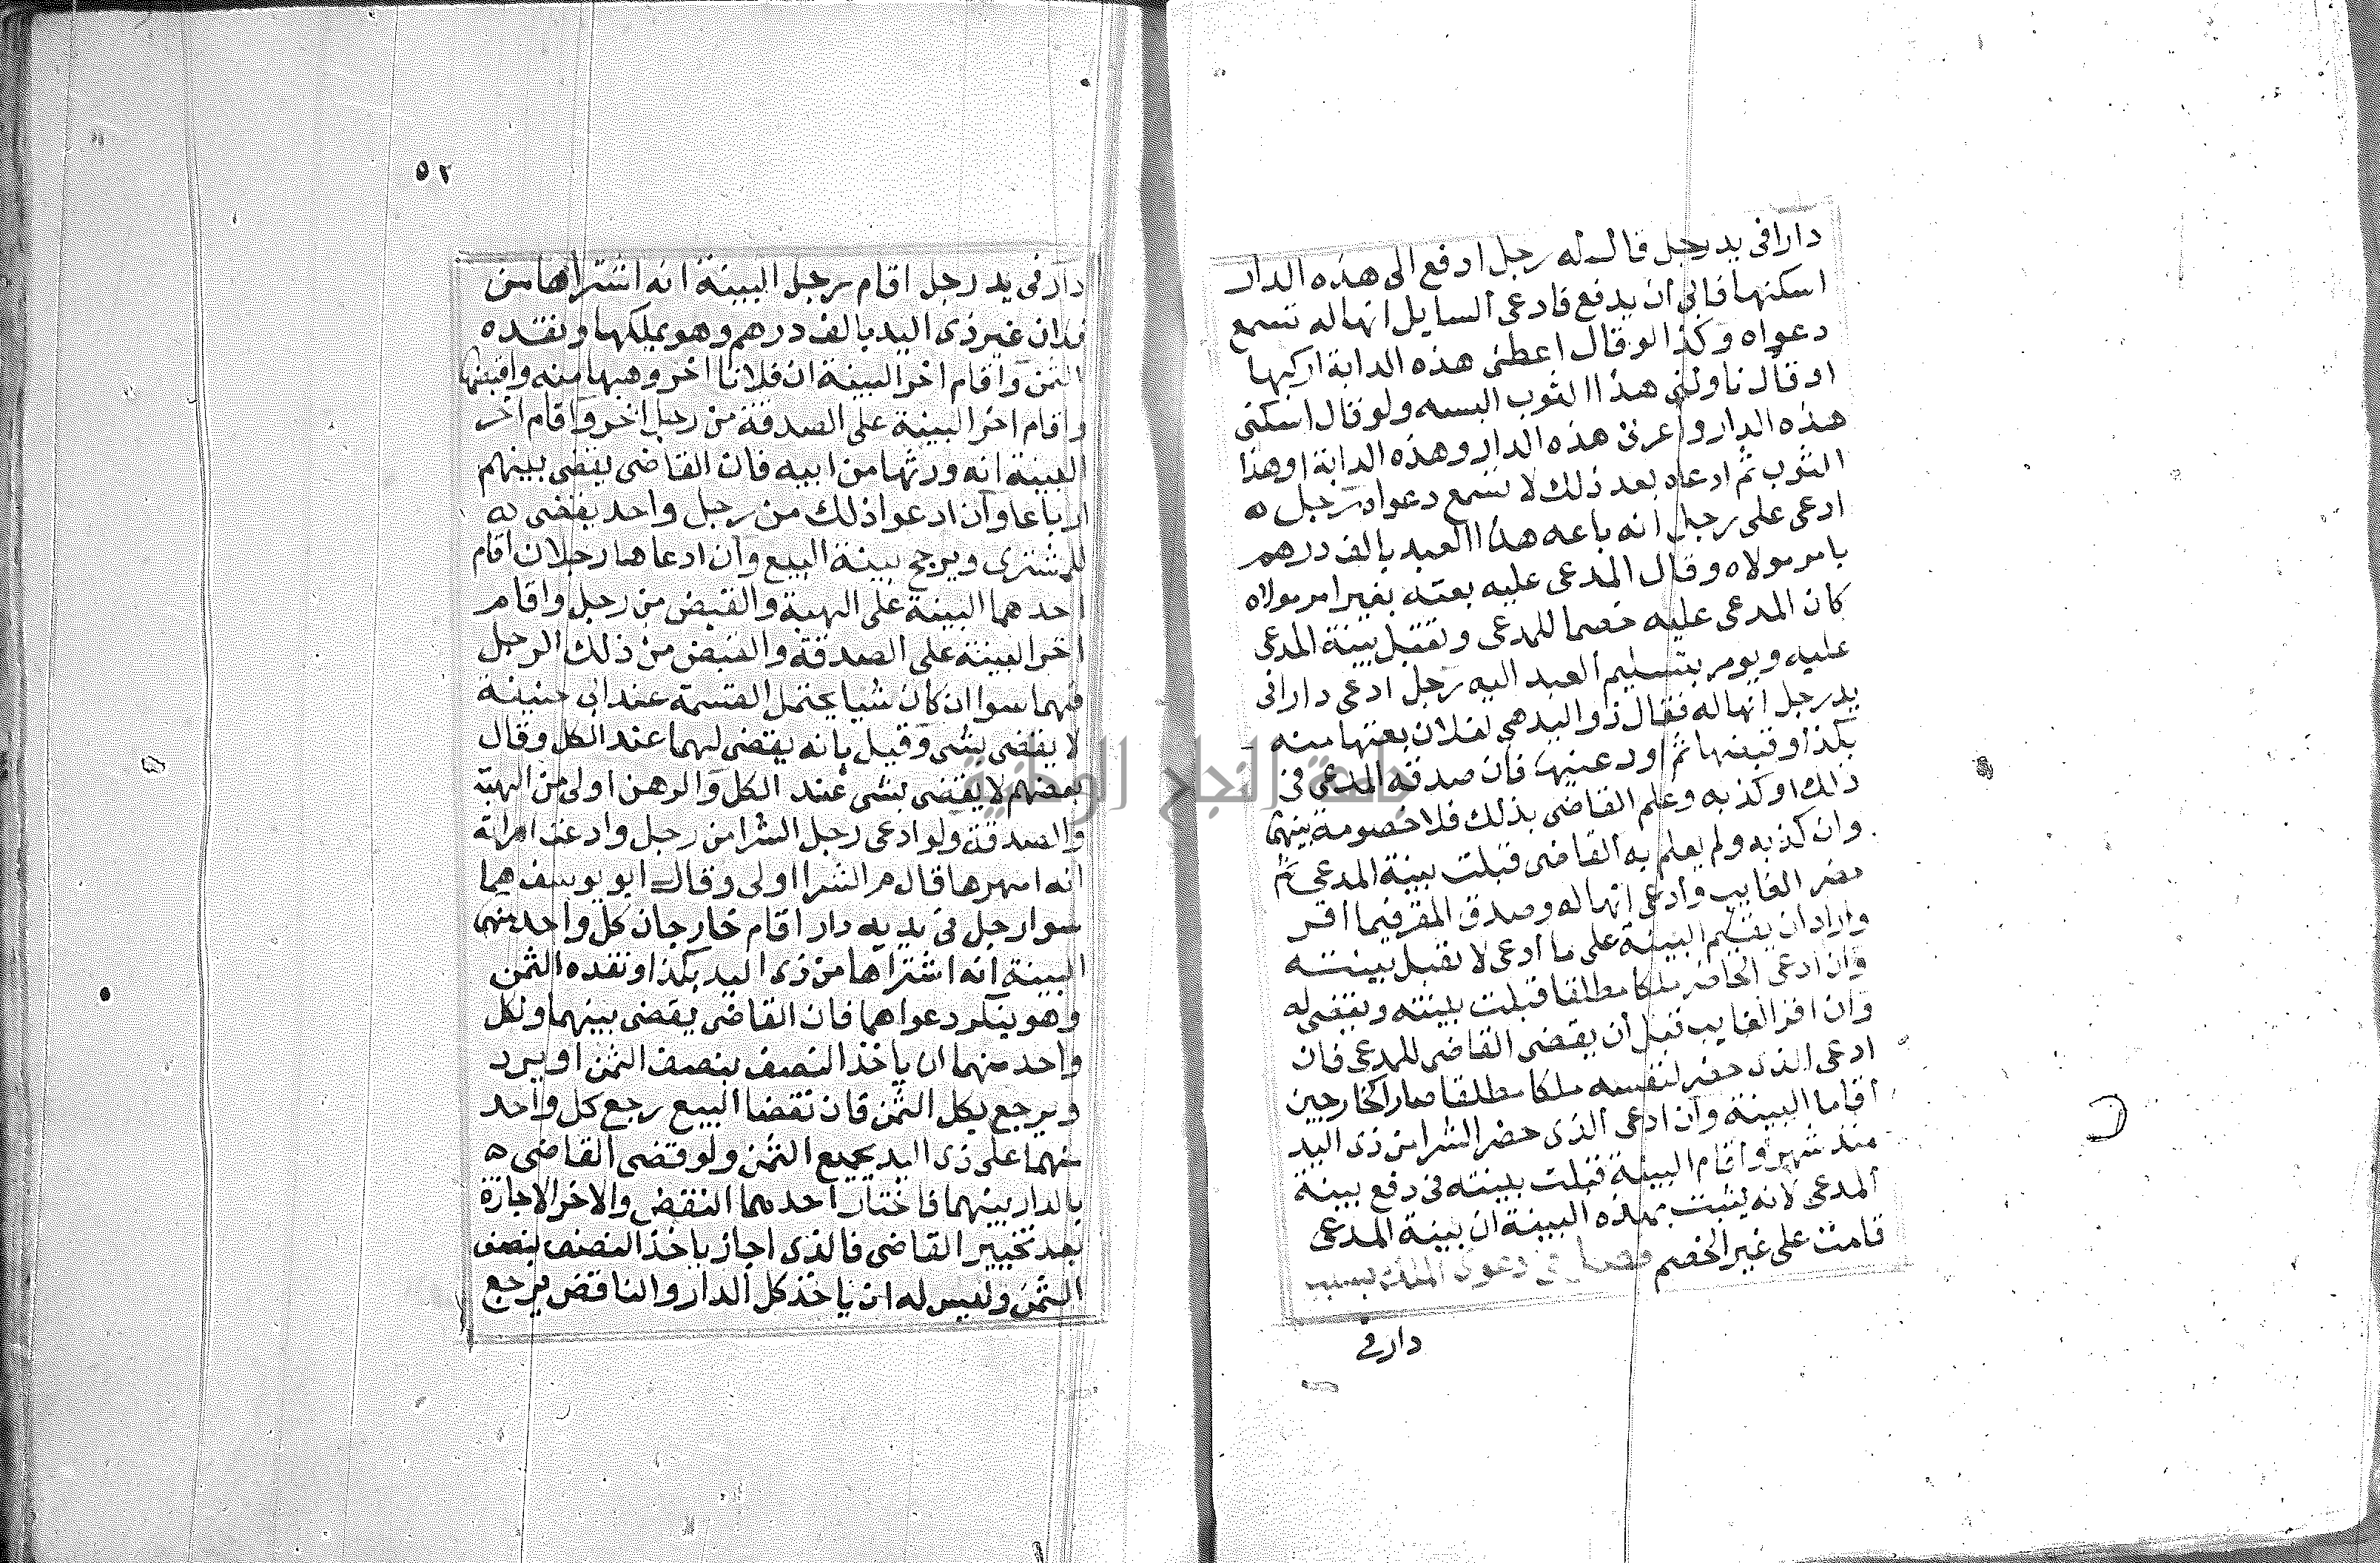 دارا فى يد رجل قال له رجل ادفع الى هذه الدار
اسكنها فابى ان يدفع فادعى السايل انها له تسمع
دعواه وكذا لو قال اعطنى هذه الدابة اركبها
او قال ناولنى هذا الثوب البسه ولو قال اسكنى
هذه الدار واعرنى هذه الدار وهذه الدابة اوهذا
الثوب ثم ادعاه بعد ذلك لا تسمع دعواه رجل ه
ادعى على رجل انه باعه هذا العبد بالف درهم
بامر مولاه وقال المدعى عليه بعته بغير امر مولاه
كان المدعى عليه خصما للمدعى وتقبل بينة المدعى
عليه ويومر بتسليم العبد اليه رجل ادعى دارا فى
يد رجل انها له فقال ذو اليد هى لفلان بعتها منه
بكذا وقبضها ثم اودعنيها فان صدقه المدعى فى
ذلك او كذبه وعلم القاضى بذلك فلا خصومة بينهما
وان كذبه ولم يعلم به القاضى قبلت بينة المدعى ثم
حضر الغايب وادعى انها له وصدق المقر فيما اقر
واراد ان يقيم البينة على ما ادعى لا تقبل بينته
وان ادعى الحاضر ملكا مطلقا قبلت بينته ويقضى له
وان اقر الغايب قبل ان يقضى القاضى للمدعى فان
ادعى الذى حضر لنفسه ملكا مطلقا صارا كخارجين
اقاما البينة وان ادعى الذى حضر الشرا من ذى اليد
منذ شهر واقام البينة قبلت بينته فى دفع بينة
المدعى لانه يثبت بهذه البينة ان بينة المدعى
قامت على غير الخصم فصل فى دعوى الملك بسبب
دار فى
٥٢
دار فى يد رجل اقام رجل البينة انه اشتراها من
فلان غير ذى اليد بالف درهم وهو يملكها ونقده
الثمن واقام اخر البينة ان فلانا اخر وهبها منه واقبضها
واقام اخر البينة على الصدقة من رجل اخر واقام اخر
البينة انه ورثها من ابيه فان القاضى يقضى بينهم
ارباعا وان ادعوا ذلك من رجل واحد يقضى به
للمشترى ويرجح بينة البيع وان ادعاها رجلان اقام
احدهما البينة على الهبة والقبض من رجل واقام
اخر البينة على الصدقة والقبض من ذلك الرجل
فهما سوا ان كان شيا يحتمل القسمة عند ابى حنيفة
لا يقضى بشى وقيل بانه يقضى لهما عند الكل وقال
بعضهم لا يقضى بشى عند الكل والرهن اولى من الهبة
والصدقة ولو ادعى رجل الشرا من رجل وادعت امراة
انه امهرها قال م الشرا اولى وقال ابو يوسف هما
سوا رجل فى يديه دار اقام خارجان كل واحد منهما
البينة انه اشتراها من ذى اليد بكذا ونقده الثمن
وهو ينكر دعواهما فان القاضى يقضى بينهما ولكل
واحد منهما ان ياخذ النصف بنصف الثمن او يرد
ويرجع بكل الثمن فان نقضا البيع رجع كل واحد
منهما على ذى اليد بجميع الثمن ولو قضى القاضى ه
بالدار بينهما فاختار احدهما النقض والاخر الاجازة
بعد تخيير القاضى فالذى اجاز ياخذ النصف بنصف
الثمن وليس له ان ياخذ كل الدار والناقض يرجع
جامعة النجاح الوطنية